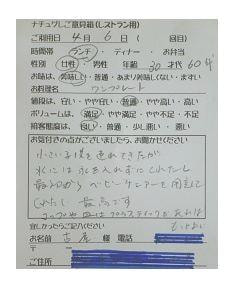 ナチュグしご意見箱(レストラン用)
ご利用日 4月 6日 ( 回目)
時間帯 ランチ・ディナー・お弁当
性別 女性・男性 年齢 30才代 60才
お味は、美味しい・普通・あまり美味しくない・まずい
お料理名 ワンプレート
値段は、安い・やや安い・普通・やや高い・高い
ボリュームは、満足・やや満足・普通・やや不満・不満
接客態度は、良い・普通・少し悪い・悪い
お気付きの点がございましたら、お聞かせください
小さい子様を連れてきたが
水には氷を入れずにくれたり
最初からベビーチェアーを用意して
くれたし 最高です
コップやお皿はプラスティックがあれば
もっとよい
宜しかったらご記入ください
お名前 古屋 様 電話
ご住所